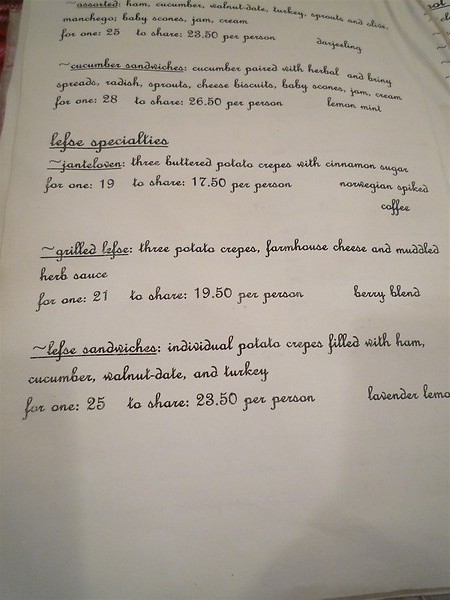 ~assorted: ham, cucumber, walnut-date, turkey, sprouts and olive,
manchego; baby scones, jam, cream
for one: 25 to share: 23.50 per person darjeeling
~cucumber sandwiches: cucumber paired with herbal and briny
spreads, radish, sprouts, cheese biscuits, baby scones, jam, cream
for one: 28 to share: 26.50 per person lemon mint
lefse specialties
~janteloven: three buttered potato crepes with cinnamon sugar
for one: 19 to share: 17.50 per person norwegian spiked
coffee
~grilled lefse: three potato crepes, farmhouse cheese and muddled
herb sauce
for one: 21 to share: 19.50 per person berry blend
~lefse sandwiches: individual potato crepes filled with ham,
cucumber, walnut-date, and turkey
for one: 25 to share: 23.50 per person lavender lemo